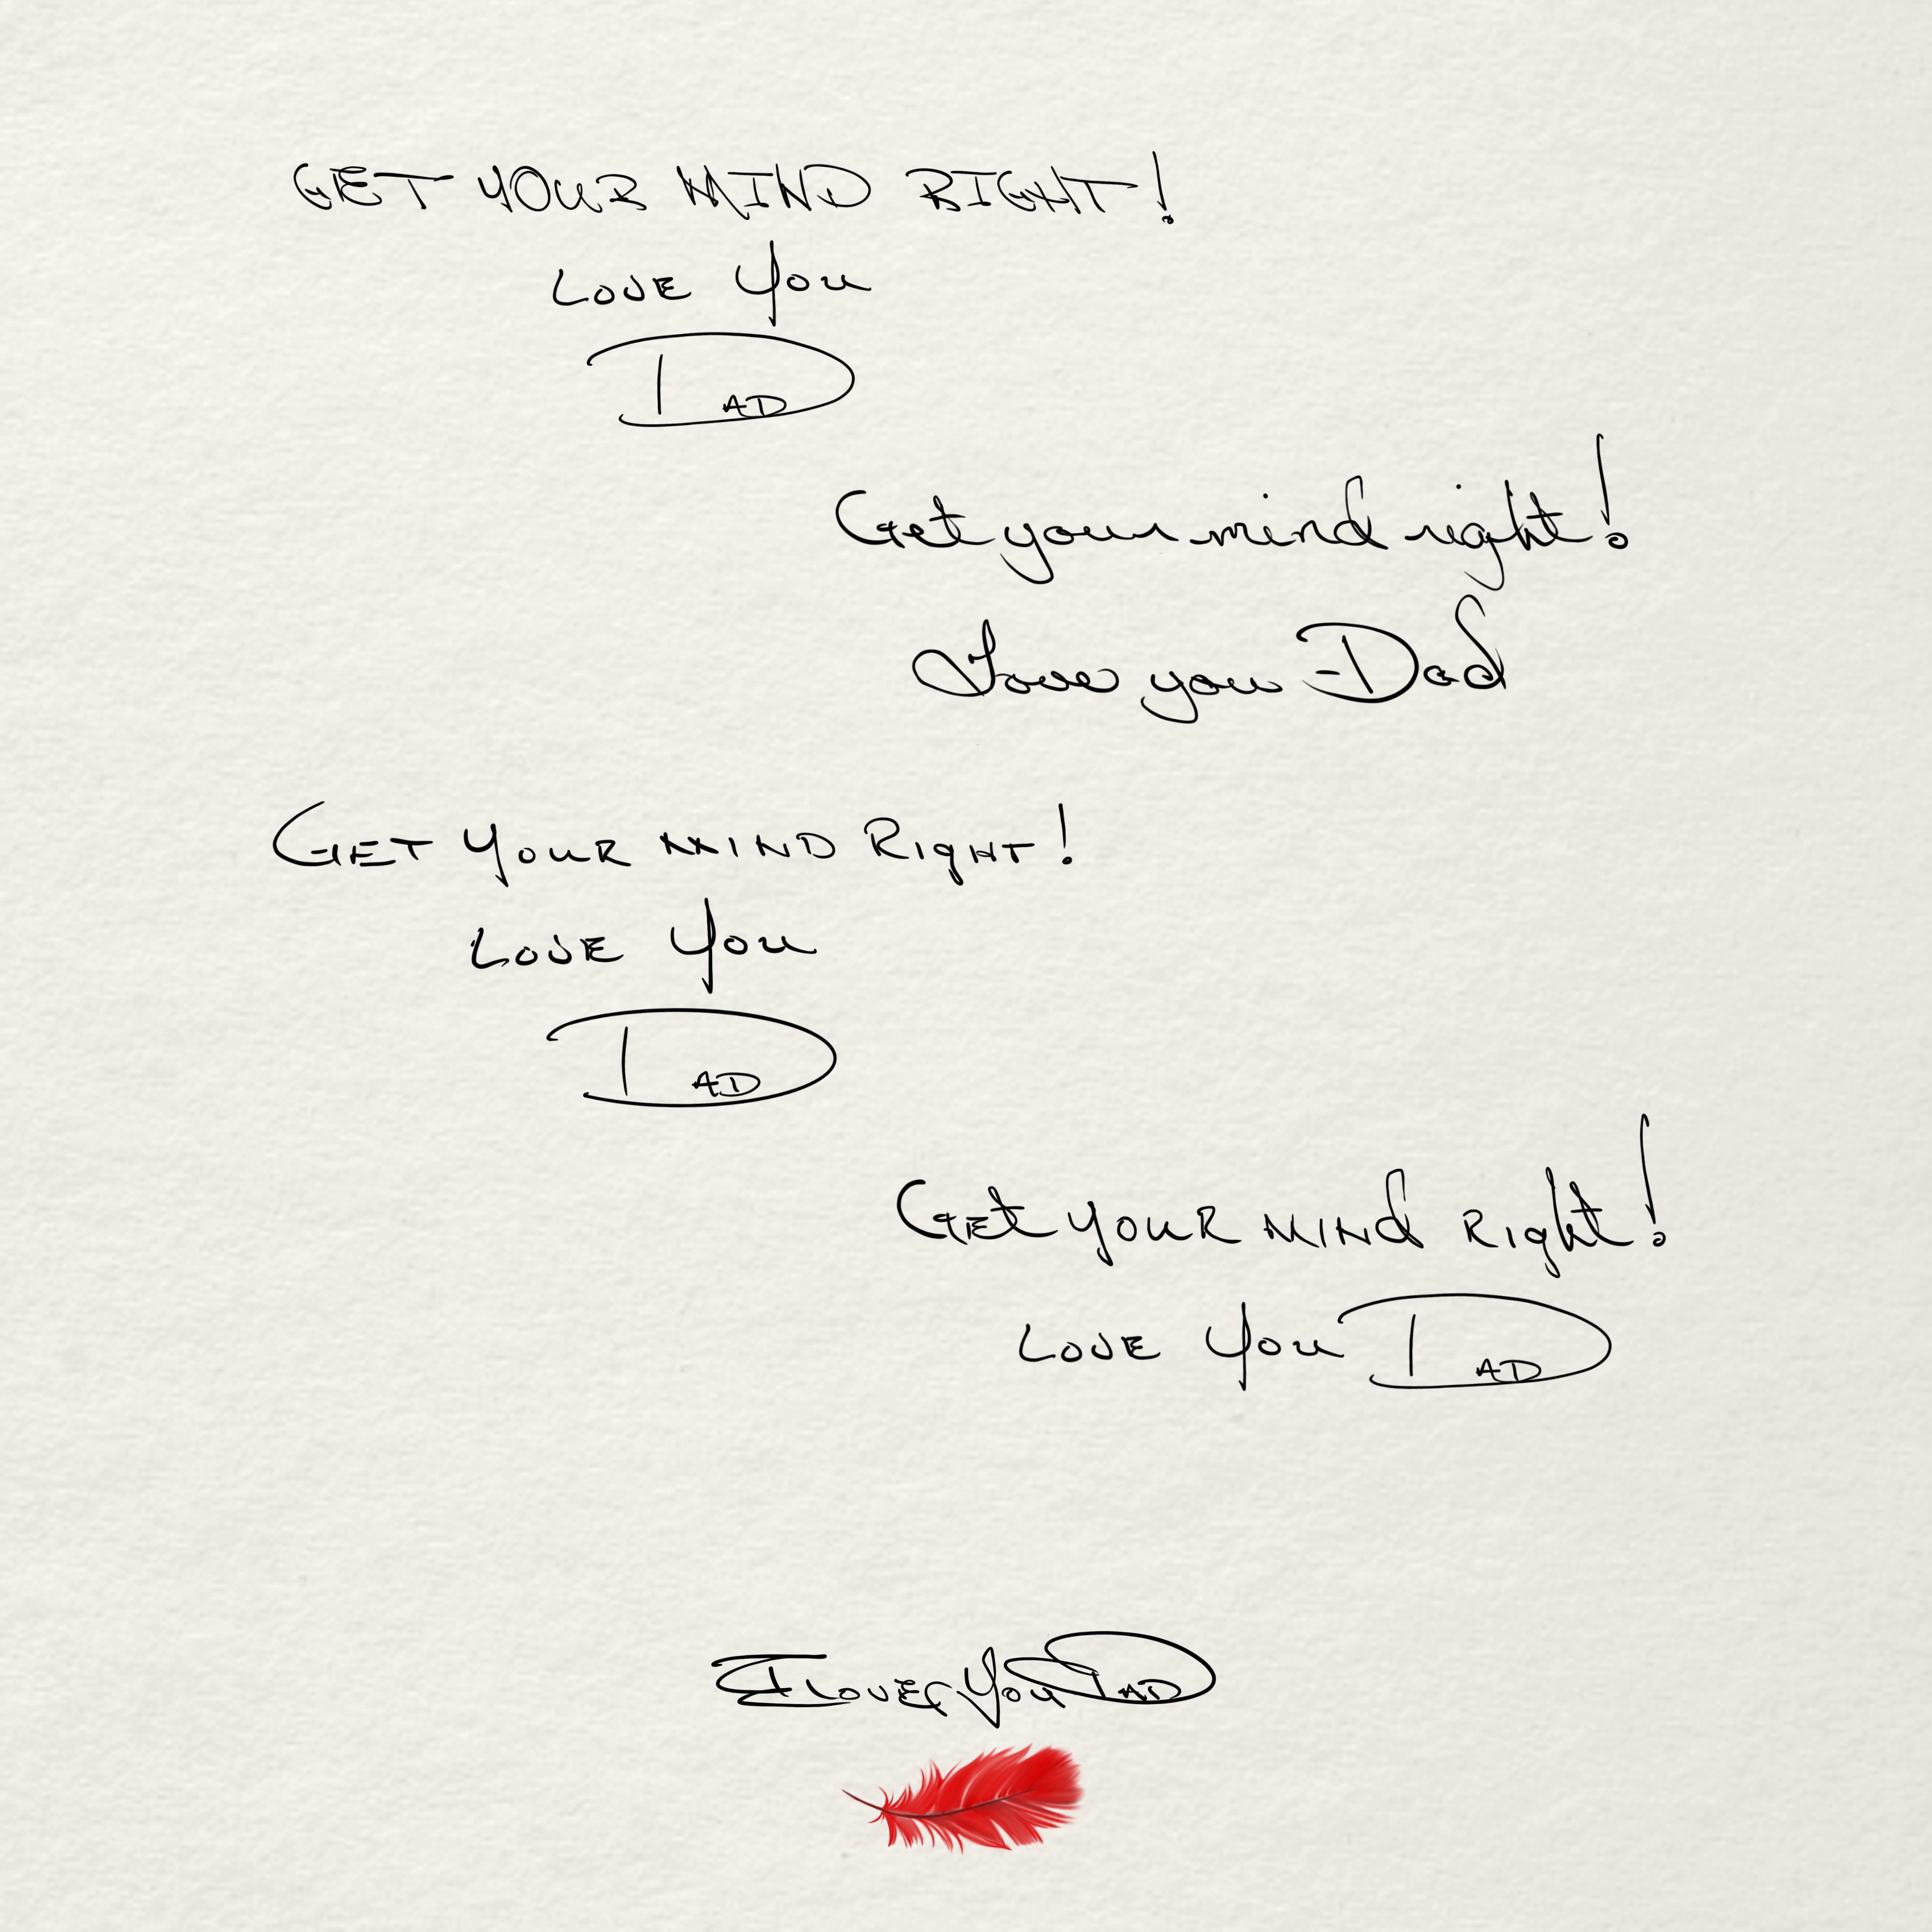 GET YOUR MIND RIGHT!
LOVE You
DAD
Get your mind right!
Love you -Dad
GET YOUR MIND RigHT!
LOVE You
DAD
GEt YOUR MINd Right!
LOVE You DAD
I LOVE You DAD